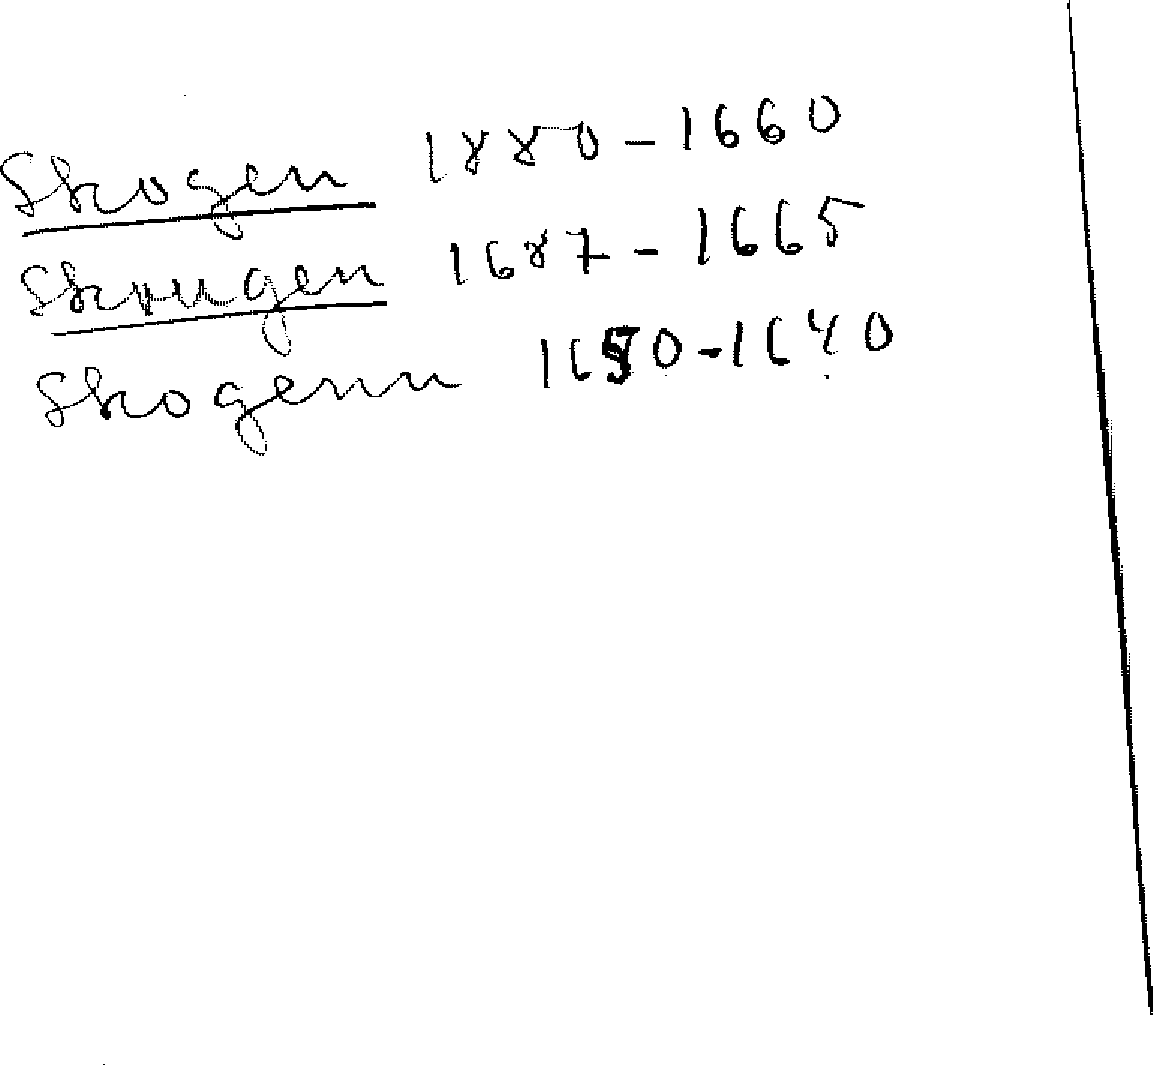 Skogen 1880-1660
Skougen 1687-1665
Skogenn 1650-1640